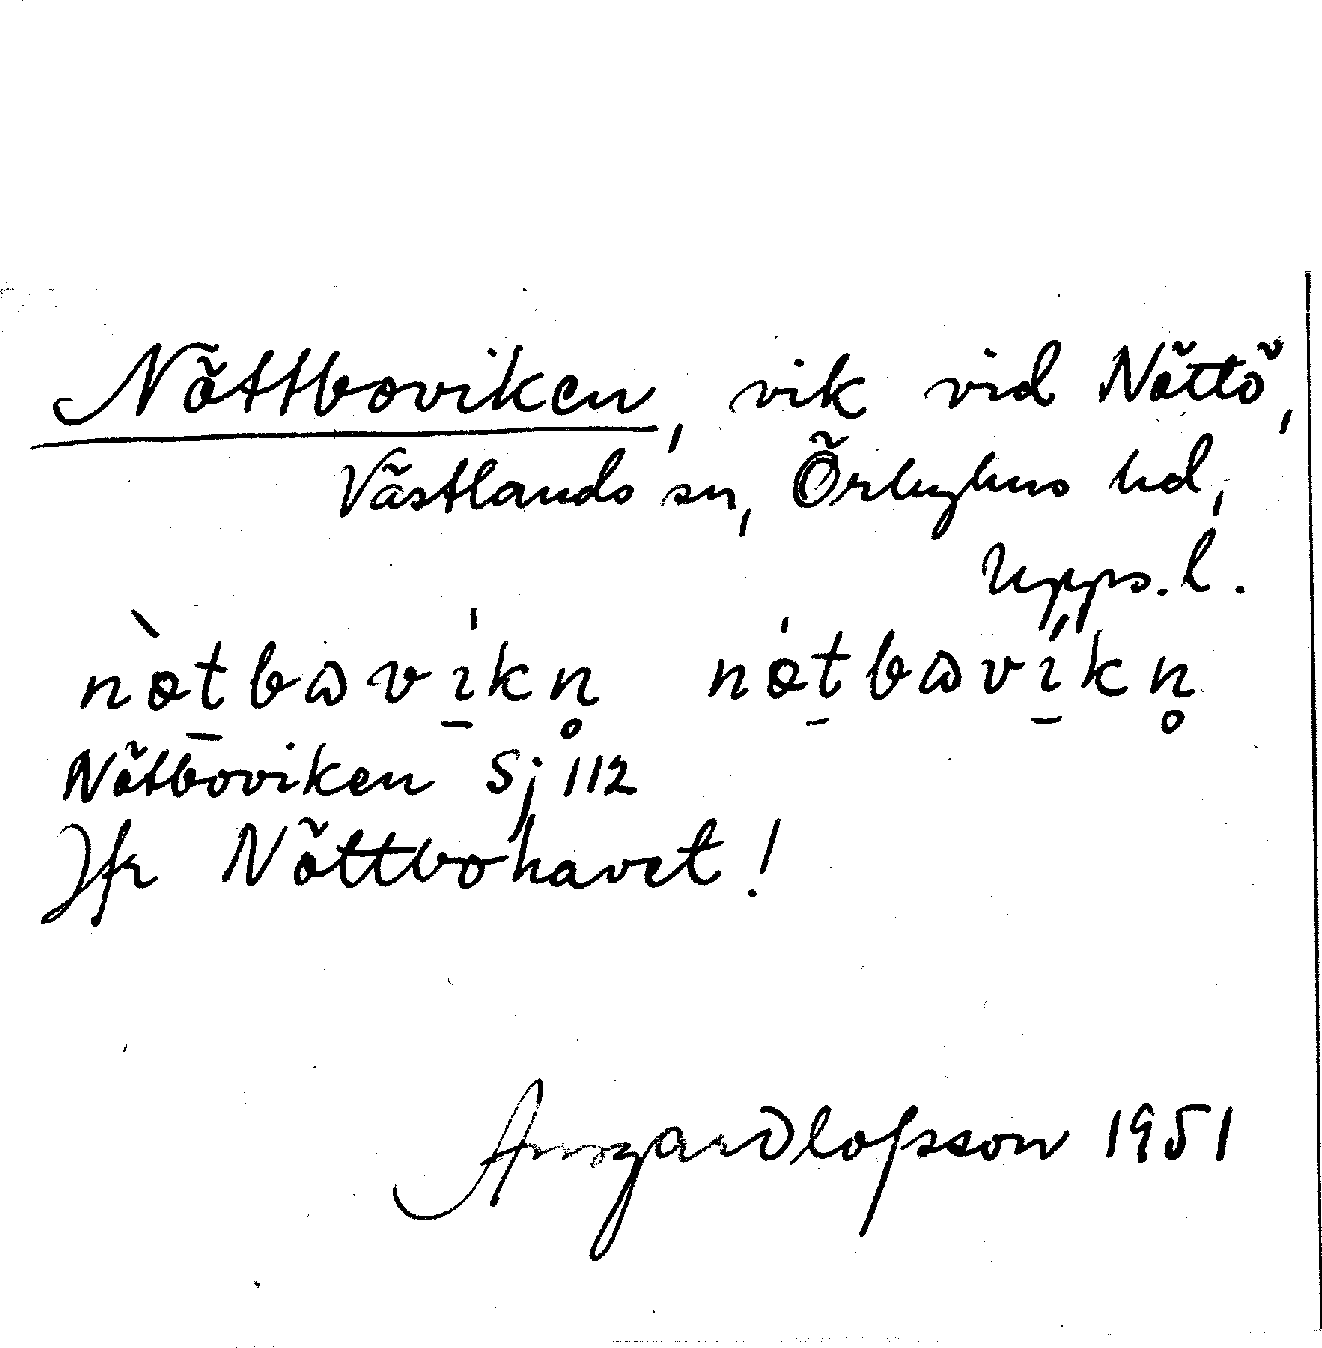 Nöttboviken, vik vid Nöttö,
Västlands sn, Örbyhus hd,
Upps. l.
nø̀t̠bɷvi̠̍kn̥ nø̍t̠bɷvi̠̍kn̥
Nötboviken Sj 112
Jfr Nöttbohavet!
Ansgar Olofsson 1951